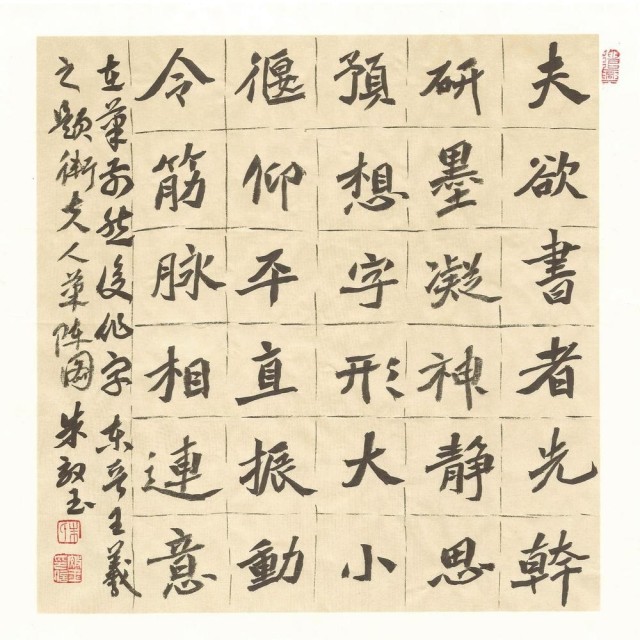 夫欲書者先幹
研墨凝神靜思
預想字形大小
偃仰平直振動
令筋脉相連意
在筆前然後作字 東晉王羲
之題衛夫人筆阵图 朱